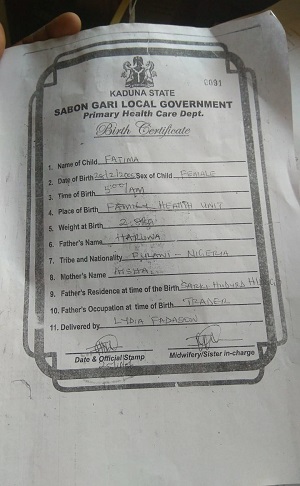 0001
KADUNA STATE
SABON GARI LOCAL GOVERNMENT
Primary Health Care Dept.
Birth Certificate
1. Name of Child FATIMA
2. Date of Birth Sex of Child FEMALE
3. Time of Birth 5:00 AM
4. Place of Birth FAMILY HEALTH UNIT
5. Weight at Birth
6. Father's Name HARUNA
7. Tribe and Nationality FULANI - NIGERIA
8. Mother's Name AISHA
9. Father's Residence at time of the Birth
10. Father's Occupation at time of Birth TRADER
11. Delivered by LYDIA
Date & Official Stamp Midwifery/Sister in-charge